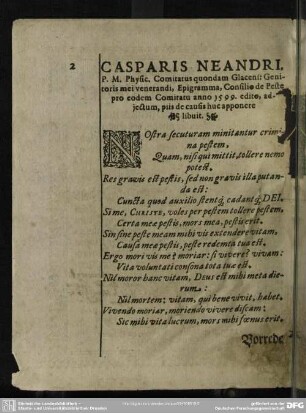 2
CASPARIS NEANDRI,
P. M. Physic. Comitatus quondam Glacenſis Geni-
toris mei venerandi, Epigramma, Conſilio de Peſte
pro eodem Comitatu anno 1599. edito, ad-
jectum, piis de cauſis huc apponere
libuit.
NOſtra ſecuturam minitantur crimi-
na peſtem,
Quam, niſi qui mittit, tollere nemo
poteſt.
Res gravis eſt peſtis, ſed non gravis illa putan-
da eſt:
Cuncta quod auxilio ſtentq́; cadantq́; DEI.
Si me, CHRISTE, voles per peſtem tollere peſtem,
Certa mea peſtis, mors mea, peſtis erit.
Sin ſine peſte meam mihi vis extendere vitam,
Cauſa mea peſtis, peſte redemta tua eſt.
Ergo mori vis me? moriar: ſi vivere? vivam:
Vita voluntati conſona tota tuæ eſt.
Nil moror hanc vitam, Deus eſt mihi meta die-
rum:
Nil mortem; vitam, qui bene vivit, habet.
Vivendo moriar, moriendo vivere diſcam:
Sic mihi vita lucrum, mors mihi fœnus erit.
Vorrede